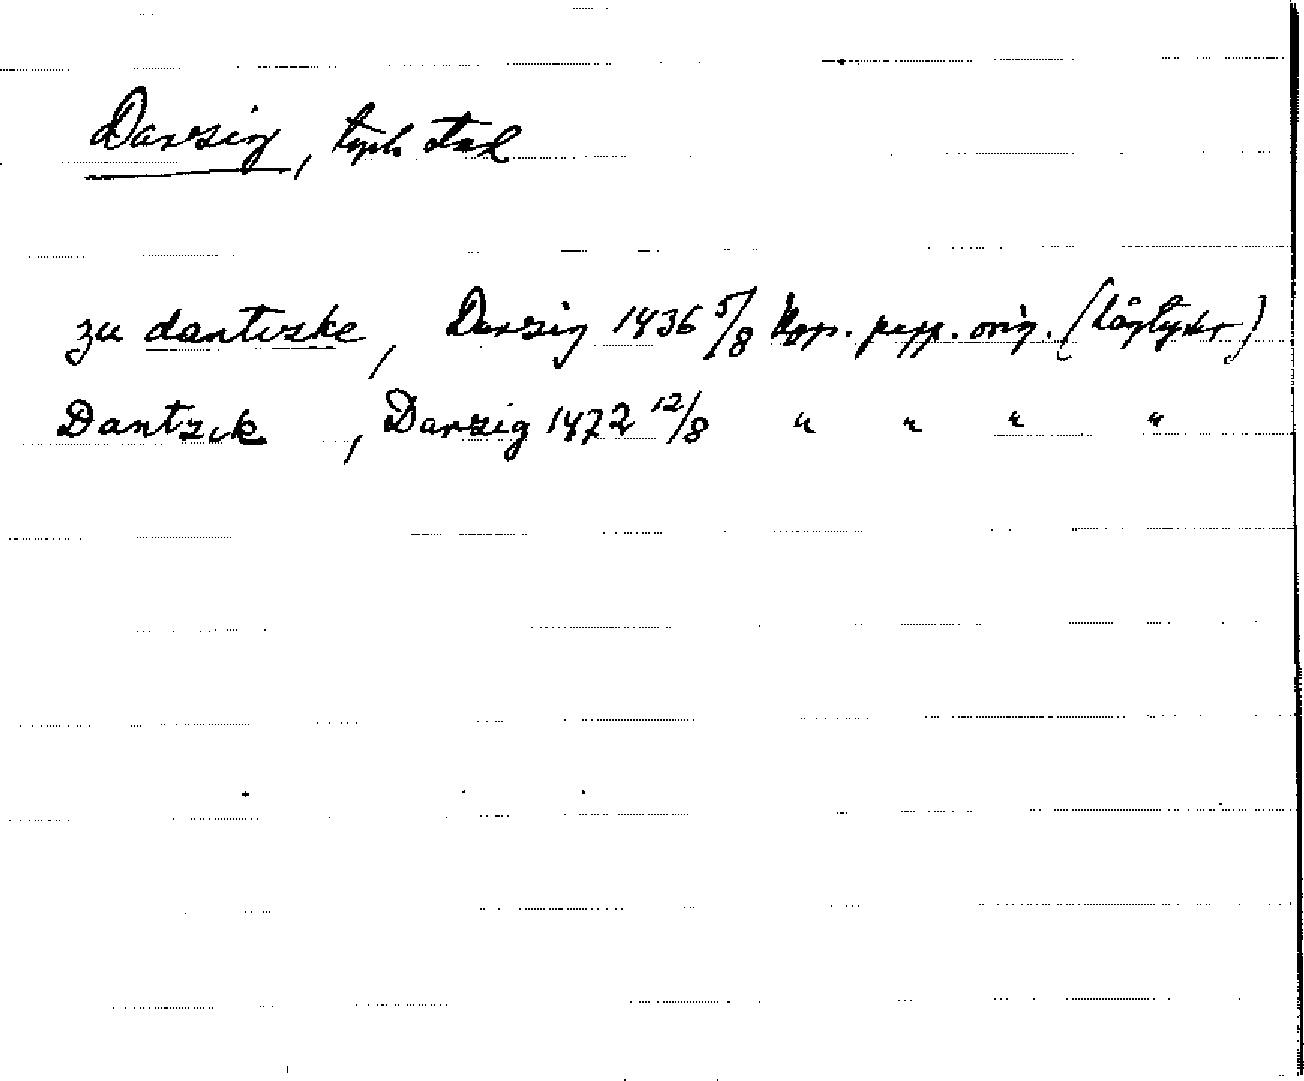 Danzig, tysk stad
zu dantzske, Danzig 1436 5/8 Kop. papp. orig. (Lågtyska)
Dantzik , Danzig 1472 12/8 " " " "